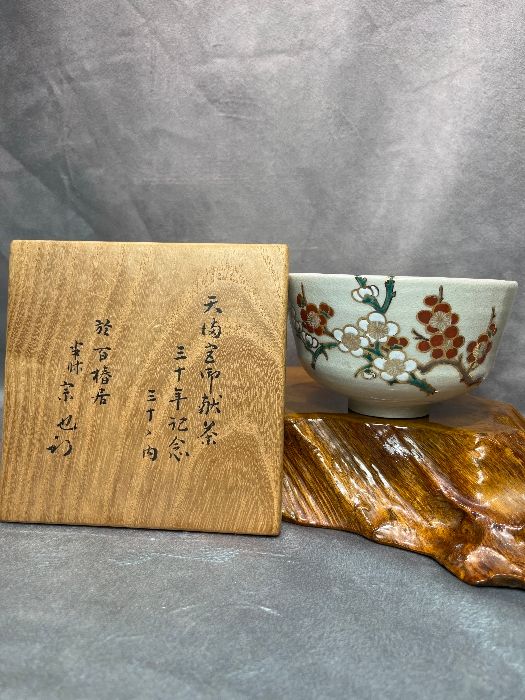 天満宮御献茶
三十年記念
三十ノ内
於百椿居
宗也